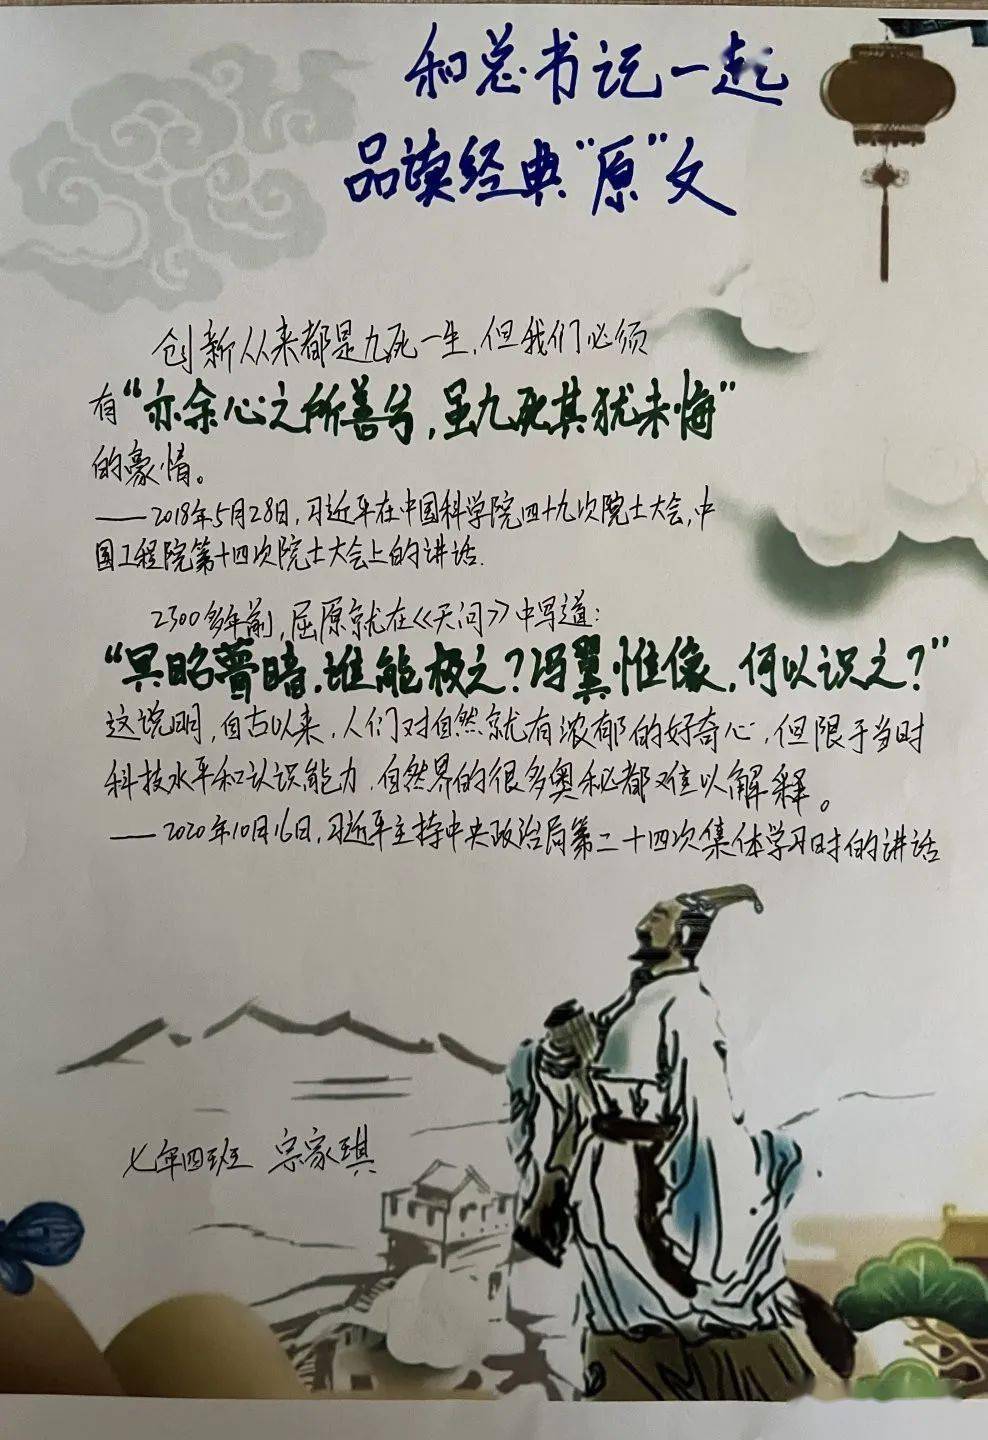 和总书记一起
品读经典“原”文
创新从来都是九死一生,但我们必须
有“亦余心之所善兮,虽九死其犹未悔”
的豪情。
——2018年5月28日,习近平在中国科学院四十九次院士大会,中
国工程院第十四次院士大会上的讲话.
2300多年前,屈原就在《天问》中写道:
“冥昭瞢暗,谁能极之?冯翼惟像,何以识之?”
这说明,自古以来,人们对自然就有浓郁的好奇心,但限于当时
科技水平和认识能力,自然界的很多奥秘都难以解释。
——2020年10月16日,习近平主持中央政治局第二十四次集体学习时的讲话
七年四班 宗家琪